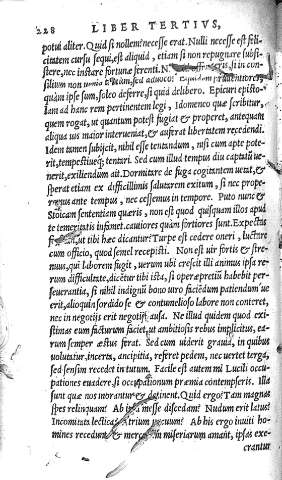 228 LIBER TERTIVS,
potui aliter. Quid si nollem? necesse erat. Nulli necesse est feli-
citatem cursu sequi, est aliquid, etiam si non repugnare subsi-
stere, nec instare fortunæ ferenti. N
silium non
quàm ipse sum, soleo deferre, si quid delibero. Epicuri episto-
lam ad hanc rem pertinentem legi, Idomeneo quæ scribitur,
quem rogat, ut quantum potest fugiat & properet, antequàm
aliqua uis maior interueniat, & auferat libertatem recedendi.
Idem tamen subijcit, nihil esse tentandum, nisi cum apte pote-
rit, tempestiueq; tentari. Sed cum illud tempus diu captatũ ue-
nerit, exiliendum ait. Dormitare de fuga cogitantem uetat, &
sperat etiam ex difficillimis salutarem exitum, si nec prope-
remus ante tempus, nec cessemus in tempore. Puto nunc &
Stoicam sententiam quæris, non est quòd quisquam illos apud
te temeritatis infamet. cautiores quàm fortiores sunt. Expectas
ut tibi hæc dicantur: Turpe est cedere oneri, luctare
cum officio, quod semel recepisti. Non est uir fortis & stre-
nuus, qui laborem fugit, uerum ubi crescit illi animus ipsa re-
rum difficultate. dicẽtur tibi ista, si operæpretiũ habebit per-
seuerantia, si nihil indignũ bono uiro faciẽdum patiendum'ue
erit, alioqui in sordido se & contumelioso labore non conteret,
nec in negotijs erit negotij causa. Ne illud quidem quod exi-
stimas eum facturum faciet, ut ambitiosis rebus implicitus, ea-
rum semper æstus ferat. Sed cum uiderit grauia, in quibus
uolutatur, incerta, ancipitia, referet pedem, nec uertet terga,
sed sensim recedet in tutum. Facile est autem mi Lucili occu-
pationes euadere, si occupationum præmia contempseris. Illa
sunt quæ nos morantur & detinent. Quid ergo? Tam magnas
spes relinquam? Ab ipsa messe discedam? Nudum erit latus?
Incomitata lectica? Atrium uacuum? Ab his ergo inuiti ho-
mines recedunt, & mercedem miseriarum amant, ipsas exe-
crantur